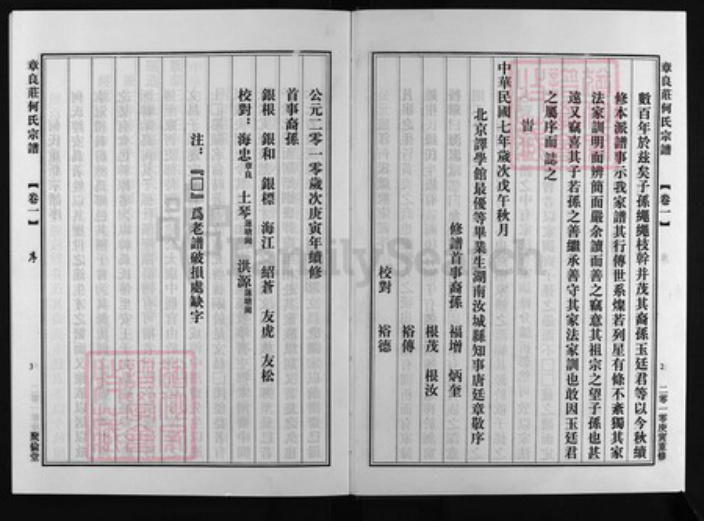 章良莊何氏宗譜 【卷一】 2 二零一零庚寅重修
數百年於茲矣子孫繩繩枝幹并茂其裔孫玉廷君等以今秋續
修本派譜事示我家譜其行傳世系燦若列星有條不紊獨其家
法家訓明而辨簡而嚴余讀而善之竊意其祖宗之望子孫也甚
遠又竊喜其子若孫之善繼承善守其家法家訓也敢因玉廷君
之屬序而誌之
旹
中華民國七年歲次戊午秋月
北京譯學館最優等畢業生湖南汝城縣知事唐廷章敬序
修譜首事裔孫 福增 炳奎
根茂 根汝
裕傳
校對 裕德
公元二零一零歲次庚寅年續修
首事裔孫
銀根 銀和 銀標 海江 紹蒼 友虎 友松
校對：海忠章良 土琴 洪源
注：『□』爲老譜破損處缺字
章良莊何氏宗譜 【卷一】 序 3 聚倫堂
FamilySearch